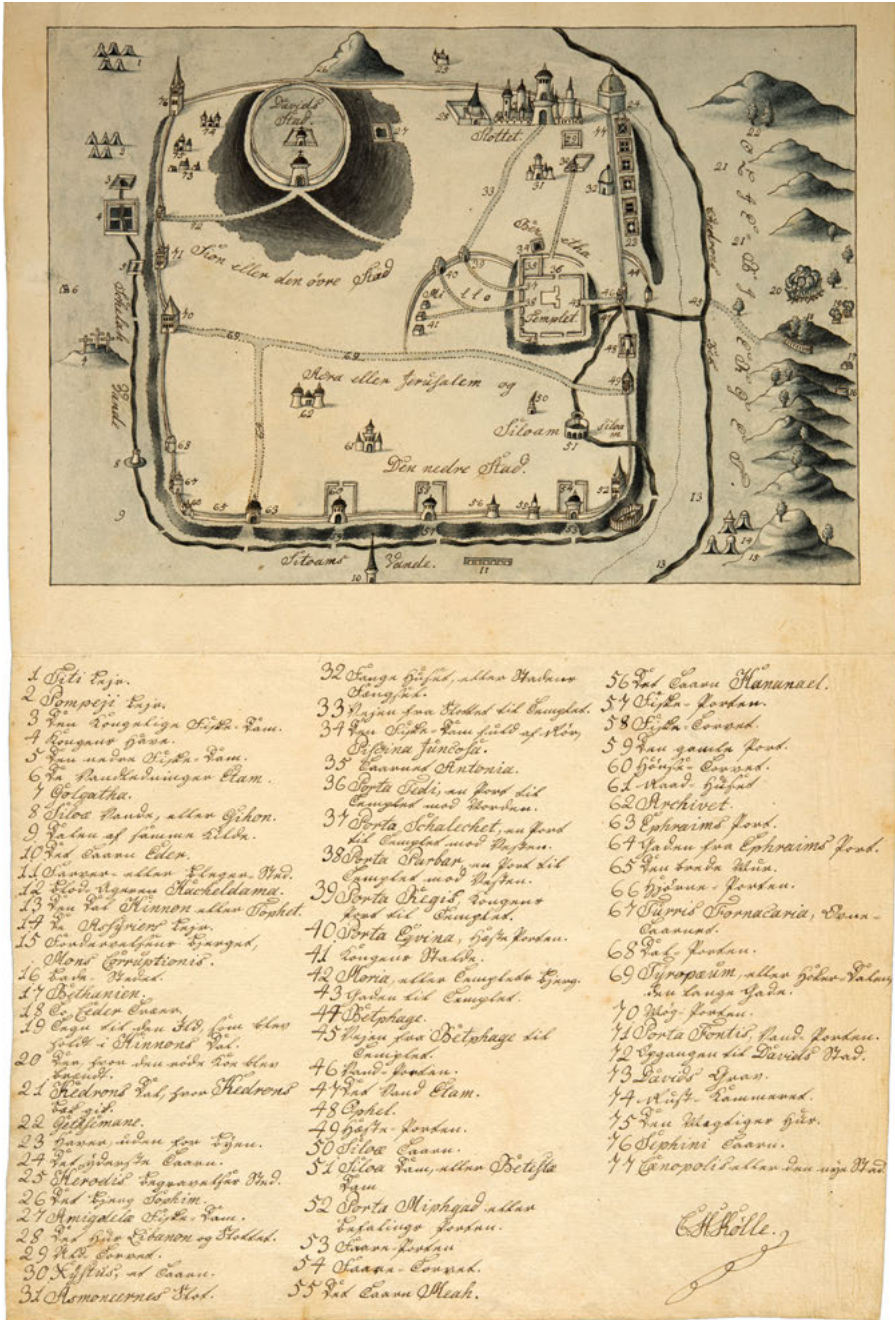 Davids
Stad.
Slottet.
Beretha
Millo
Templet
Sion eller den övre Stad
Acra eller Jerusalem og
Den nedre Stad.
Siloam
Siloams Vande.
1 Titi Lejr.
2 Pompeji Lejr.
3 Den Kongelige Fiske-Dam.
4 Kongens Have.
5 Den nedre Fiske-Dam.
6 De Vandledninger Etam.
7 Golgatha.
8 Siloæ Vande, eller Gihon.
9 Dalen af samme Kilde.
10 Det Taarn Eder.
11 Farver- eller Bleger-Sted.
12 Blod-Ageren Hacheldama.
13 Den Dal Hinnon eller Tophet.
14 De Assyriers Lejr.
15 Fordærvelsens Bjerget,
Mons Corruptionis.
16 Bede-Stedet.
17 Bethanien.
18 To Ceder Træer.
19 Tegn til den Ild, som blev
holdt i Hinnons Dal.
20 Der, hvor den röde Koe blev
brændt.
21 Kedrons Dal, hvor Kedrons
Bæk gik.
22 Gethsimane.
23 Haver, uden for Byen.
24 Det yderste Taarn.
25 Herodis Begravelses Sted.
26 Det Bjerg Sophim.
27 Amigdelæ Fiske-Dam.
28 Det Huus Libanon og Slottet.
29 Torvet.
30 Xystus, et Taarn.
31 Asmonærnes Slot.
32 Fange Huset, eller Stadens
Fængsel.
33 Vejen fra Slottet til Templet.
34 Den Fiske-Dam fuld af Rör,
Piscina Juncosa.
35 Taarnet Antonia.
36 Porta Tedi, en Port til
Templet mod Norden.
37 Porta Schalechet, en Port
til Templet mod Vesten.
38 Porta Parbar, en Port til
Templet mod Vesten.
39 Porta Regis, Kongens
Port til Templet.
40 Porta Eqvina, Heste Porten.
41 Kongens Stalde.
42 Moria, eller Templets Bjerg.
43 Gaden til Templet.
44 Betphage.
45 Vejen fra Betphage til
Templet.
46 Vand-Porten.
47 Det Vand Etam.
48 Ophel.
49 Heste-Porten.
50 Siloæ Taarn.
51 Siloa Dam, eller Betesta
Dam
52 Porta Miphgad eller
Befalings Porten.
53 Faare-Porten
54 Faare-Torvet.
55 Det Taarn Meah.
56 Det Taarn Hananael.
57 Fiske-Porten.
58 Fiske-Torvet.
59 Den gamle Port.
60 Hönse-Torvet.
61 Raad-Huset
62 Archivet.
63 Ephraims Port.
64 Gaden fra Ephraims Port.
65 Den brede Muur.
66 Hjörne-Porten.
67 Turris Fornacaria, Ovne-
Taarnet.
68 Dal-Porten.
69 Tyropæum, eller Dalen,
den lange Gade.
70 Mög-Porten.
71 Porta Fontis, Vand Porten.
72 Opgangen til Davids Stad.
73 Davids Grav.
74 Rust-Kammeret.
75 Den Mægtiges Huus.
76 Sephini Taarn.
77 Cænopolis eller den nye Stad
C H Kölle.